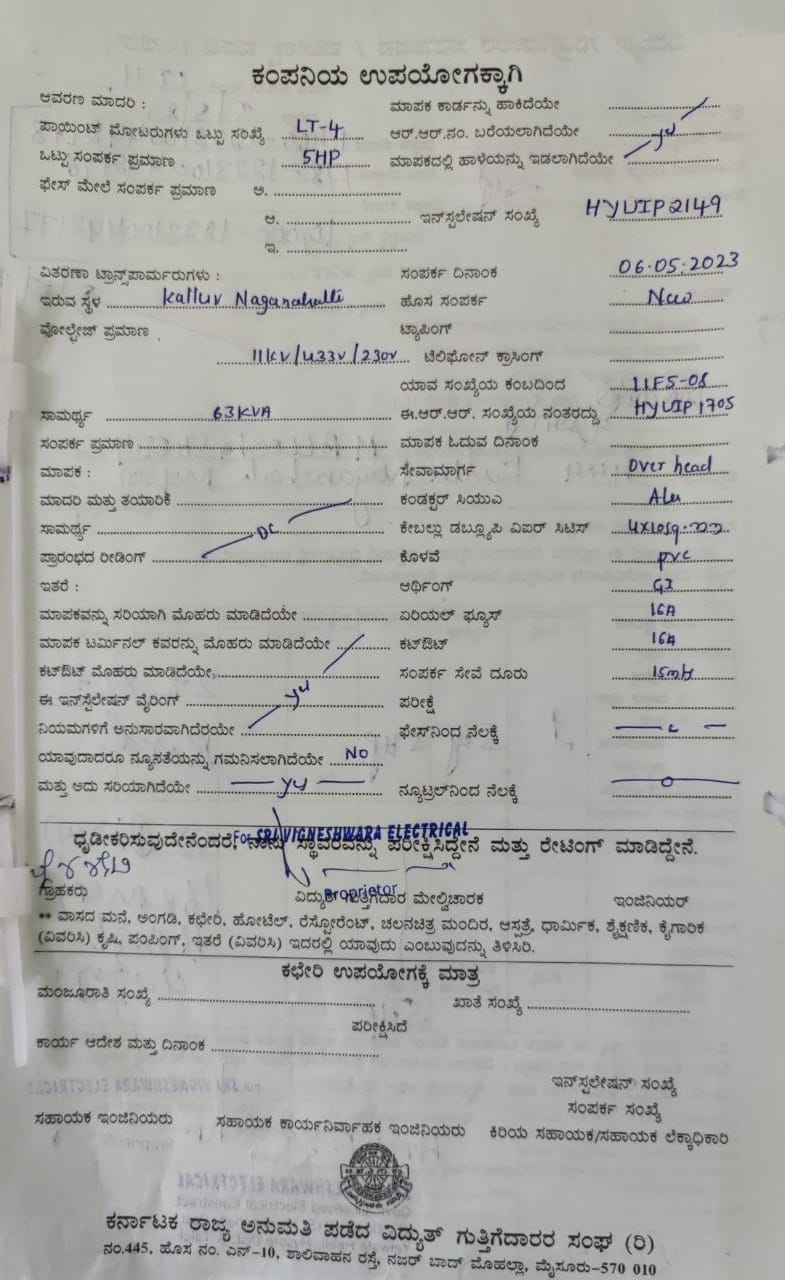 ಕಂಪನಿಯ ಉಪಯೋಗಕ್ಕಾಗಿ
ಆವರಣ ಮಾದರಿ : ಮಾಪಕ ಕಾರ್ಡನ್ನು ಹಾಕಿದೆಯೇ
ಪಾಯಿಂಟ್ ಮೋಟರುಗಳು ಒಟ್ಟು ಸಂಖ್ಯೆ LT-4 ಆರ್.ಆರ್.ನಂ. ಬರೆಯಲಾಗಿದೆಯೇ
ಒಟ್ಟು ಸಂಪರ್ಕ ಪ್ರಮಾಣ 5HP ಮಾಪಕದಲ್ಲಿ ಹಾಳೆಯನ್ನು ಇಡಲಾಗಿದೆಯೇ
ಫೇಸ್ ಮೇಲೆ ಸಂಪರ್ಕ ಪ್ರಮಾಣ ಅ.
ಆ. ಇನ್‌ಸ್ಪಲೇಷನ್ ಸಂಖ್ಯೆ HYUIP2149
ಇ.
ವಿತರಣಾ ಟ್ರಾನ್ಸ್‌ಪಾರ್ಮರುಗಳು : ಸಂಪರ್ಕ ದಿನಾಂಕ 06.05.2023
ಇರುವ ಸ್ಥಳ Kallur Naganahalli ಹೊಸ ಸಂಪರ್ಕ New
ವೋಲ್ಟೇಜ್ ಪ್ರಮಾಣ ಟ್ಯಾಪಿಂಗ್
11KV/433V/230V ಟೆಲಿಫೋನ್ ಕ್ರಾಸಿಂಗ್
ಯಾವ ಸಂಖ್ಯೆಯ ಕಂಬದಿಂದ
ಸಾಮರ್ಥ್ಯ 63KVA ಈ.ಆರ್.ಆರ್. ಸಂಖ್ಯೆಯ ನಂತರದ್ದು HYUIP1705
ಸಂಪರ್ಕ ಪ್ರಮಾಣ ಮಾಪಕ ಓದುವ ದಿನಾಂಕ
ಮಾಪಕ : ಸೇವಾಮಾರ್ಗ Over head
ಮಾದರಿ ಮತ್ತು ತಯಾರಿಕೆ ಕಂಡಕ್ಟರ್ ಸಿಯುಎ Alu
ಸಾಮರ್ಥ್ಯ DC ಕೇಬಲ್ಲು ಡಬ್ಲ್ಯೂಪಿ ವಿಐರ್ ಸಿಟಿಸ್ 4x10sq.mm
ಪ್ರಾರಂಭದ ರೀಡಿಂಗ್ ಕೊಳವೆ pvc
ಇತರೆ : ಆರ್ಥಿಂಗ್ GI
ಮಾಪಕವನ್ನು ಸರಿಯಾಗಿ ಮೊಹರು ಮಾಡಿದೆಯೇ ಏರಿಯಲ್ ಫ್ಯೂಸ್ 16A
ಮಾಪಕ ಟರ್ಮಿನಲ್ ಕವರನ್ನು ಮೊಹರು ಮಾಡಿದೆಯೇ ಕಟ್‌ಔಟ್ 16A
ಕಟ್‌ಔಟ್ ಮೊಹರು ಮಾಡಿದೆಯೇ ಸಂಪರ್ಕ ಸೇವೆ ದೂರು 15mt
ಈ ಇನ್‌ಸ್ಪೆಲೇಷನ್ ವೈರಿಂಗ್ ಪರೀಕ್ಷೆ
ನಿಯಮಗಳಿಗೆ ಅನುಸಾರವಾಗಿದೆರಯೇ ಫೇಸ್‌ನಿಂದ ನೆಲಕ್ಕೆ
ಯಾವುದಾದರೂ ನ್ಯೂನತೆಯನ್ನು ಗಮನಿಸಲಾಗಿದೆಯೇ No
ಮತ್ತು ಅದು ಸರಿಯಾಗಿದೆಯೇ ನ್ಯೂಟ್ರಲ್‌ನಿಂದ ನೆಲಕ್ಕೆ
For SRI VIGNESHWARA ELECTRICAL
ಧೃಡೀಕರಿಸುವುದೇನೆಂದರೆ, ನಾನು ಸ್ಥಾವರವನ್ನು ಪರೀಕ್ಷಿಸಿದ್ದೇನೆ ಮತ್ತು ರೇಟಿಂಗ್ ಮಾಡಿದ್ದೇನೆ.
Proprietor
ಗ್ರಾಹಕರು ವಿದ್ಯುತ್ ಗುತ್ತಿಗೆದಾರ ಮೇಲ್ವಿಚಾರಕ ಇಂಜಿನಿಯರ್
** ವಾಸದ ಮನೆ, ಅಂಗಡಿ, ಕಛೇರಿ, ಹೋಟೆಲ್, ರೆಸ್ಟೋರೆಂಟ್, ಚಲನಚಿತ್ರ ಮಂದಿರ, ಆಸ್ಪತ್ರೆ, ಧಾರ್ಮಿಕ, ಶೈಕ್ಷಣಿಕ, ಕೈಗಾರಿಕ
(ವಿವರಿಸಿ) ಕೃಷಿ, ಪಂಪಿಂಗ್, ಇತರೆ (ವಿವರಿಸಿ) ಇದರಲ್ಲಿ ಯಾವುದು ಎಂಬುವುದನ್ನು ತಿಳಿಸಿರಿ.
ಕಛೇರಿ ಉಪಯೋಗಕ್ಕೆ ಮಾತ್ರ
ಮಂಜೂರಾತಿ ಸಂಖ್ಯೆ ಖಾತೆ ಸಂಖ್ಯೆ
ಪರೀಕ್ಷಿಸಿದೆ
ಕಾರ್ಯ ಆದೇಶ ಮತ್ತು ದಿನಾಂಕ
ಇನ್‌ಸ್ಪಲೇಷನ್ ಸಂಖ್ಯೆ
ಸಂಪರ್ಕ ಸಂಖ್ಯೆ
ಸಹಾಯಕ ಇಂಜಿನಿಯರು ಸಹಾಯಕ ಕಾರ್ಯನಿರ್ವಾಹಕ ಇಂಜಿನಿಯರು ಕಿರಿಯ ಸಹಾಯಕ/ಸಹಾಯಕ ಲೆಕ್ಕಾಧಿಕಾರಿ
ಕರ್ನಾಟಕ ರಾಜ್ಯ ಅನುಮತಿ ಪಡೆದ ವಿದ್ಯುತ್ ಗುತ್ತಿಗೆದಾರರ ಸಂಘ (ರಿ)
ನಂ.445, ಹೊಸ ನಂ. ಎನ್-10, ಶಾಲಿವಾಹನ ರಸ್ತೆ, ನಜರ್ ಬಾದ್ ಮೊಹಲ್ಲಾ, ಮೈಸೂರು-570 010